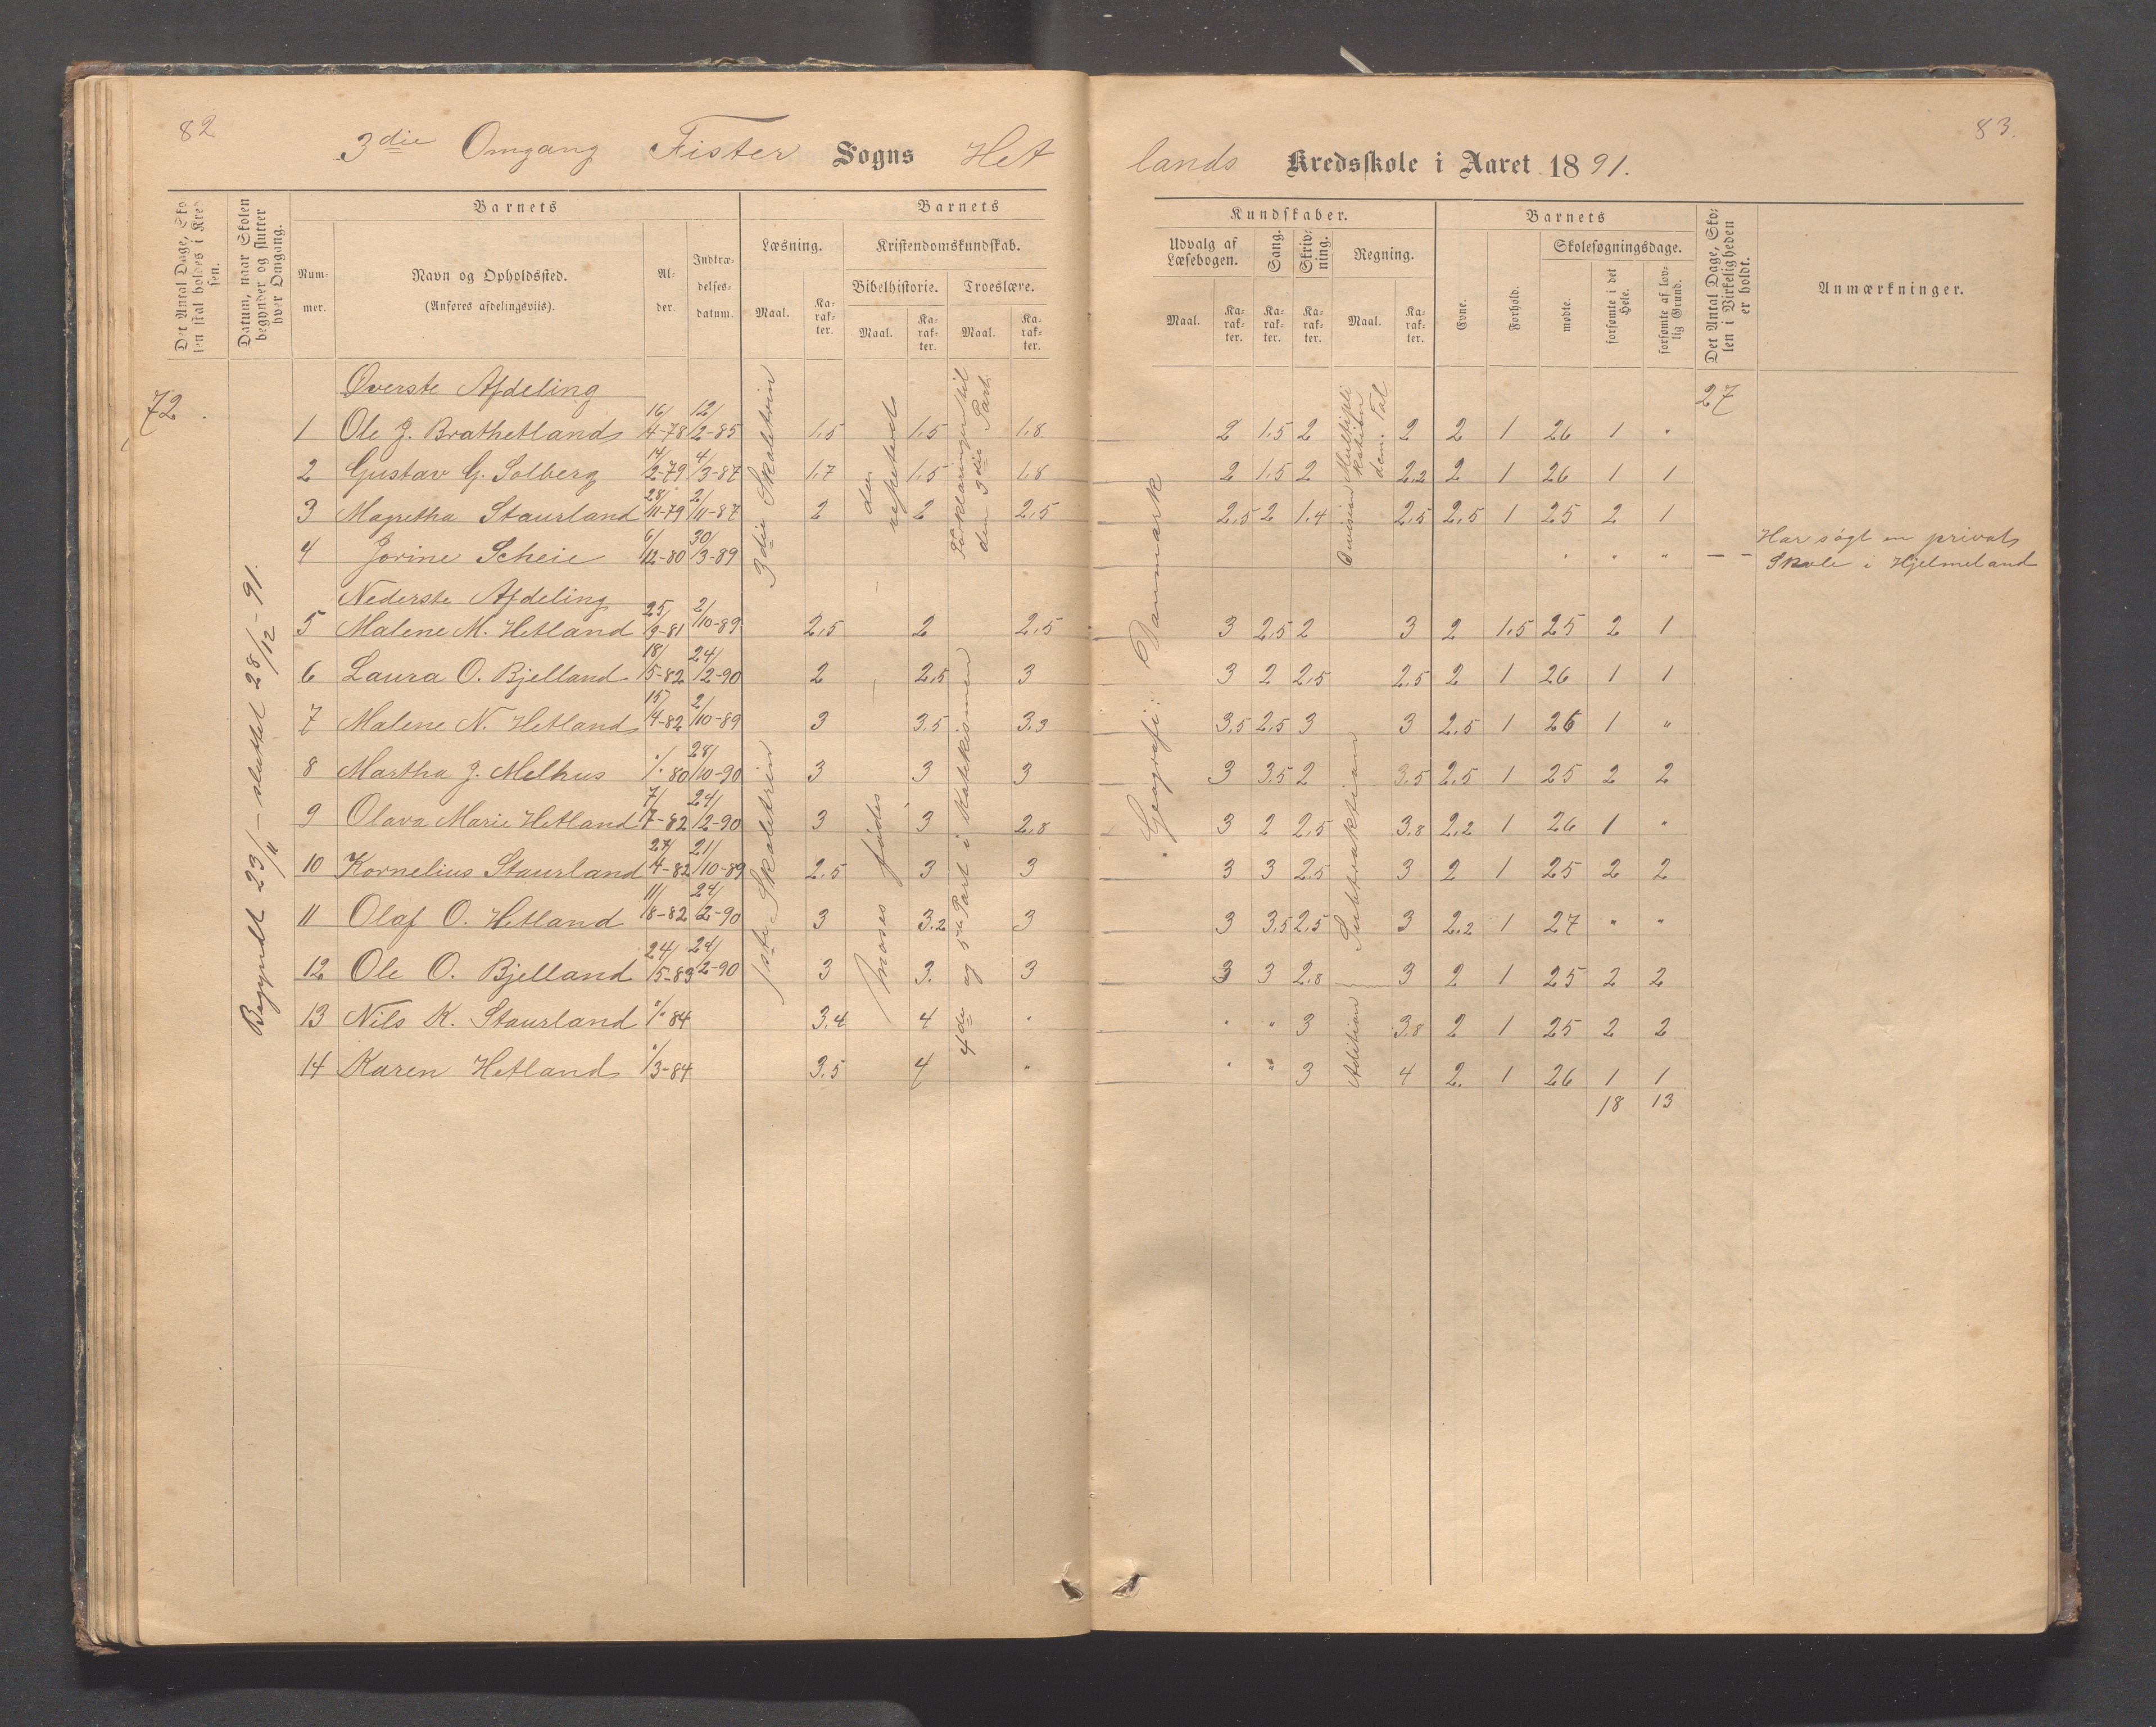 82
83.
3die Omgang Fister Sogns Hetlands Kredsskole i Aaret 1891.
Det Antal Dage, Skolen skal holdes i Kredsen.
Datum, naar Skolen begynder og slutter hver Omgang.
Barnets
Nummer.
Navn og Opholdssted.
(Anføres afdelingsviis).
Alder.
Indtrædelsesdatum.
Barnets
Læsning.
Maal.
Karakter.
Kristendomskundskab.
Bibelhistorie.
Maal.
Karakter.
Troeslære.
Maal.
Karakter.
Kundskaber.
Udvalg af Læsebogen.
Maal.
Karakter.
Sang.
Karakter.
Skrivning.
Karakter.
Regning.
Maal.
Karakter.
Barnets
Evne.
Forhold.
Skolesøgningsdage.
mødte.
forsømte i det Hele.
forsømte af lovlig Grund.
Det Antal Dage, Skolen i Virkeligheden er holdt.
Anmærkninger.
72.
Begyndt 23/11 - sluttet 28/12 - 91.
27
Øverste Afdeling
1 Ole J. Brathetland 16/4-78 12/2-85 1,5 1,5 1,8 2 1,5 2 2 2 1 26 1 "
2 Gustav G. Solberg 14/2-79 4/3-87 1,7 1,5 1,8 2 1,5 2 2,2 2 1 26 1 1
3 Magretha Staurland 28/11-79 2/11-87 2 2 2,5 2,5 2 1,4 2,5 2,5 1 25 2 1
4 Jorine Scheie 6/12-80 30/3-89 " " " — — Har søgt en privat Skole i Hjelmeland
Nederste Afdeling
5 Malene M. Hetland 25/9-81 2/10-89 2,5 2 2,5 3 2,5 2 3 2 1,5 25 2 1
6 Laura O. Bjelland 18/5-82 24/2-90 2 2,5 3 3 2 2,5 2,5 2 1 26 1 1
7 Malene N. Hetland 15/4-82 2/10-89 3 3,5 3,3 3,5 2,5 3 3 2,5 1 26 1 "
8 Martha J. Melhus "/"80 28/10-90 3 3 3 3 3,5 2 3,5 2,5 1 25 2 2
9 Olava Marie Hetland 7/7-82 24/2-90 3 3 2,8 3 2 2,5 3,8 2,2 1 26 1 "
10 Kornelius Staurland 27/4-82 21/10-89 2,5 3 3 3 3 2,5 3 2 1 25 2 2
11 Olaf O. Hetland 11/8-82 24/2-90 3 3,2 3 3 3,5 2,5 3 2,2 1 27 " "
12 Ole O. Bjelland 24/5-83 24/2-90 3 3. 3 3 3 2,8 3 2 1 25 2 2
13 Nils K. Staurland "/"84 3,4 4 " " " 3 3,8 2 1 25 2 2
14 Karen Hetland "/3-84 3,5 4 " " " 3 4 2. 1 26 1 1
18 13
3die Skoletrin
1ste Skoletrin
repeteret
Moses fødes
Forklaringen til den 3die Part.
4de og 5te Part i Katekismen
Geografi: Danmark
Division
Multiplikation
Tal
Subtraktion
Addition